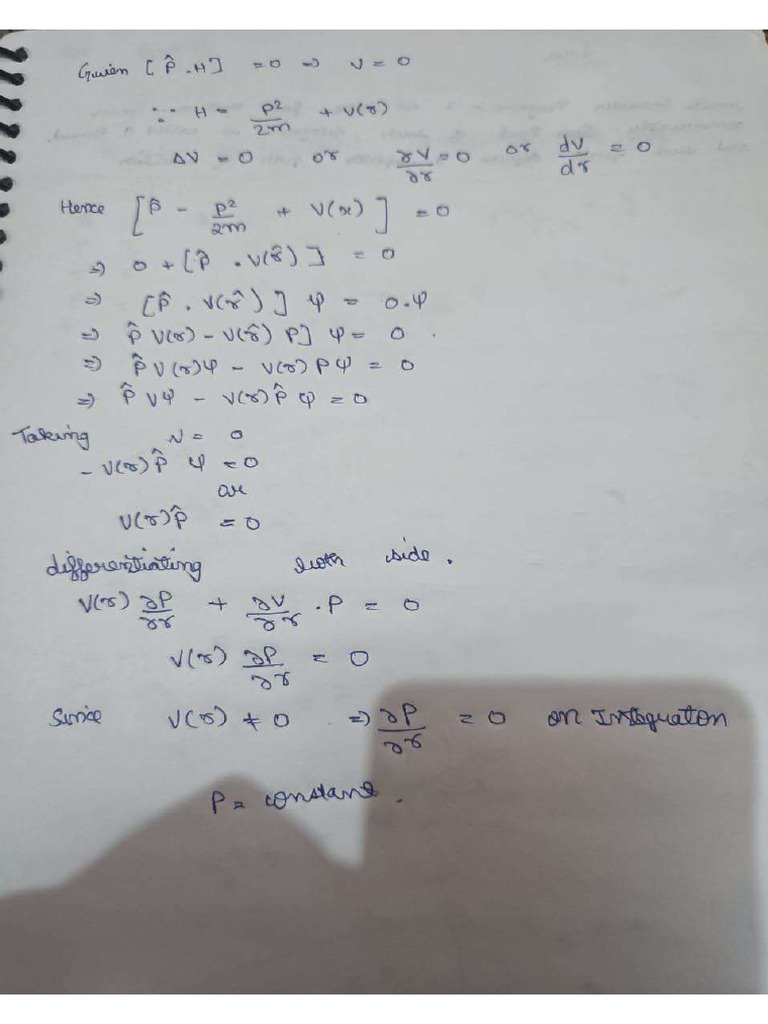 Given [ P̂ . H ] = 0 ⇒ V = 0
∵ H = P²/2m + V(r)
ΔV = 0 or ∂V/∂r = 0 or dV/dr = 0
Hence [ P̂ - P²/2m + V(r) ] = 0
⇒ 0 + [ P̂ . V(r̂) ] = 0
⇒ [ P̂ . V(r̂) ] ψ = 0.ψ
⇒ P̂ V(r) - V(r̂) P ] ψ = 0 .
⇒ P̂ V(r)ψ - V(r) P ψ = 0
⇒ P̂ Vψ - V(r) P̂ ψ = 0
Taking V = 0
- V(r) P̂ ψ = 0
or
V(r) P̂ = 0
differentiating both side .
V(r) ∂P/∂r + ∂V/∂r . P = 0
V(r) ∂P/∂r = 0
Since V(r) ≠ 0 ⇒ ∂P/∂r = 0 on Integraton
P = constant .